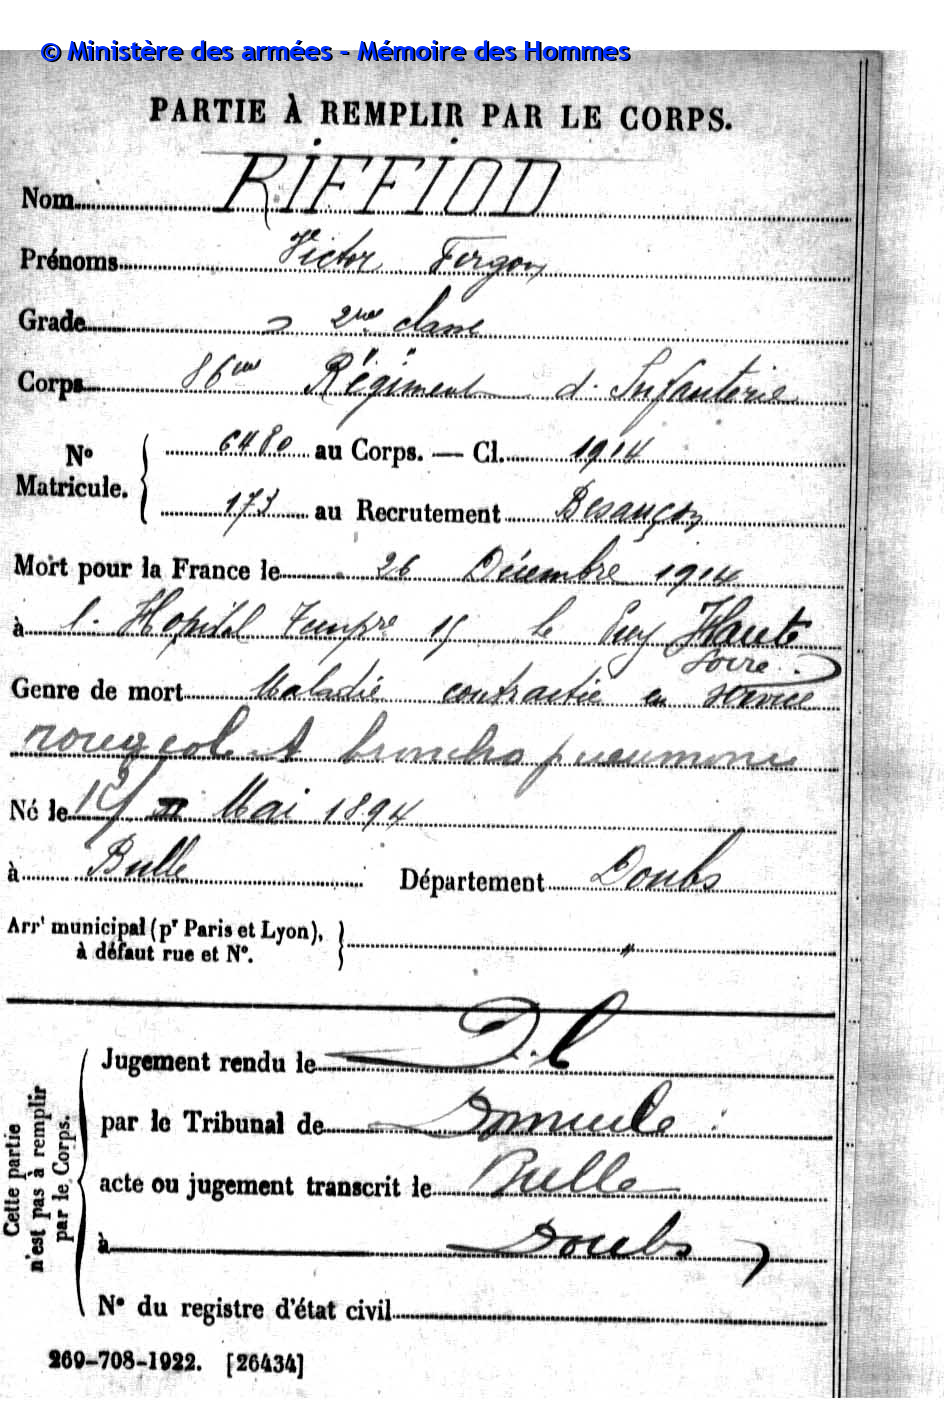 © Ministère des armées - Mémoire des Hommes
PARTIE À REMPLIR PAR LE CORPS.
Nom RIFFIOD
Prénoms Victor
Grade 2me classe
Corps 86me Régiment d'Infanterie
No Matricule. 6480 au Corps. — Cl. 1914
173 au Recrutement Besançon
Mort pour la France le 26 Décembre 1914
à l'Hopital Tempre 15 le Puy Haute
Loire
Genre de mort Maladie contractée en service
rougeole et broncho pneumonie
Né le Mai 1894
à Bulle Département Doubs
Arrt municipal (pr Paris et Lyon), à défaut rue et No. "
Cette partie n'est pas à remplir par le Corps.
Jugement rendu le D.C
par le Tribunal de Domicile :
acte ou jugement transcrit le Bulle
à Doubs
No du registre d'état civil
269-708-1922. [26434]